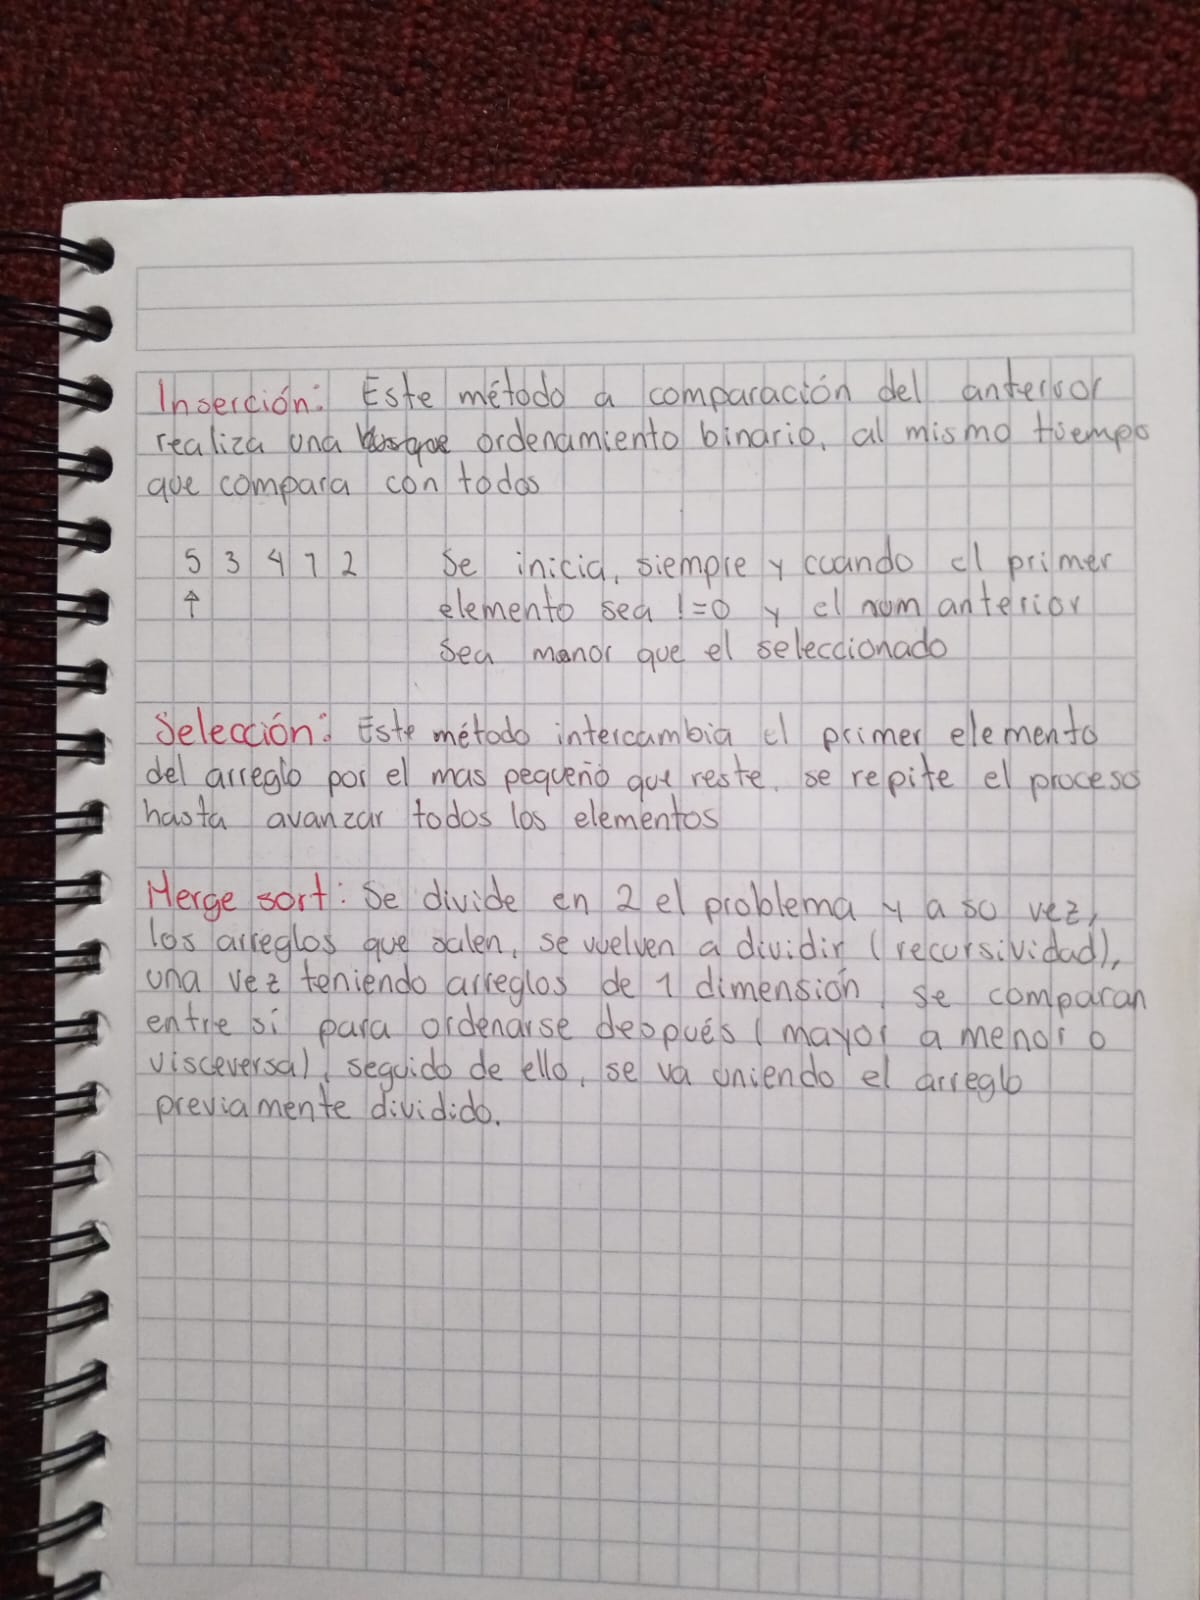 Inserción: Este método a comparación del anterior
realiza una ordenamiento binario, al mismo tiempo
que compara con todos
5 3 4 1 2 Se inicia, siempre y cuando el primer
↑ elemento sea != 0 y el num anterior
sea menor que el seleccionado
Selección: Este método intercambia el primer elemento
del arreglo por el mas pequeño que reste, se repite el proceso
hasta avanzar todos los elementos
Merge sort: Se divide en 2 el problema y a su vez,
los arreglos que salen, se vuelven a dividir (recursividad),
una vez teniendo arreglos de 1 dimensión, se comparan
entre si para ordenarse después (mayor a menor o
visceversa), seguido de ello, se va uniendo el arreglo
previamente dividido.